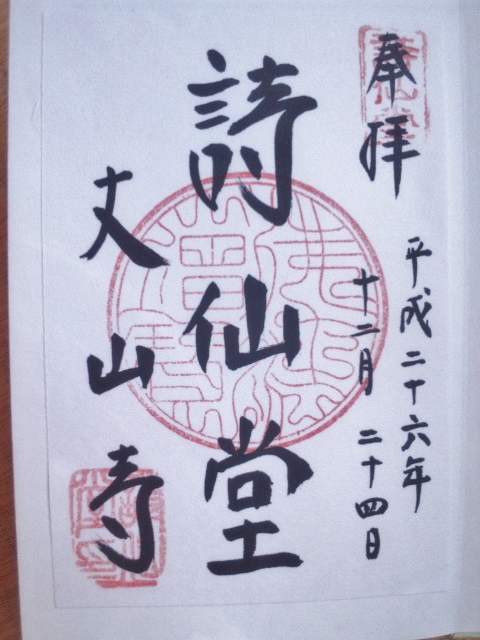 奉拝
平成二十六年
十二月二十四日
詩仙堂
丈山寺